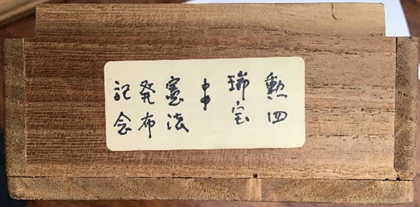 勲四
瑞宝
憲法
発布
記念